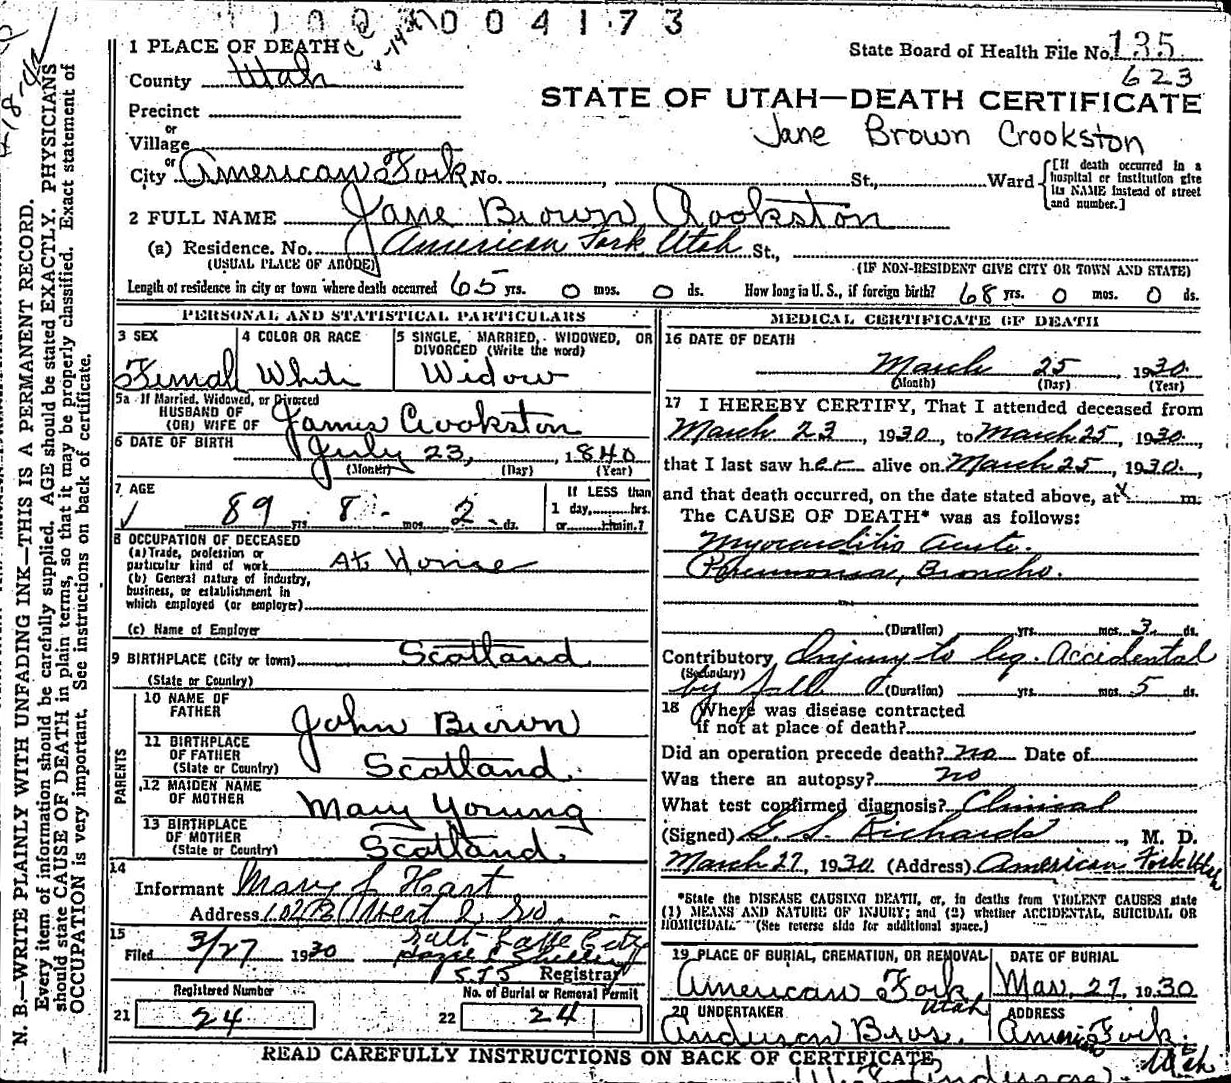 004173
1 PLACE OF DEATH
State Board of Health File No. 135
County Utah
623
STATE OF UTAH—DEATH CERTIFICATE
Precinct
Jane Brown Crookston
or
Village
or
City American Fork No. , St., Ward [If death occurred in a hospital or institution give its NAME instead of street and number.]
2 FULL NAME Jane Brown Crookston
(a) Residence. No. American Fork Utah St.,
(USUAL PLACE OF ABODE) (IF NON-RESIDENT GIVE CITY OR TOWN AND STATE)
Length of residence in city or town where death occurred 65 yrs. 0 mos. 0 ds. How long in U. S., if foreign birth? 68 yrs. 0 mos. 0 ds.
PERSONAL AND STATISTICAL PARTICULARS
3 SEX
Femal
4 COLOR OR RACE
White
5 SINGLE, MARRIED, WIDOWED, OR
DIVORCED (Write the word)
Widow
5a If Married, Widowed, or Divorced
HUSBAND OF
(OR) WIFE OF James Crookston
6 DATE OF BIRTH July 23, 1840
(Month) (Day) (Year)
7 AGE
89 yrs. 8 mos. 2 ds.
If LESS than
1 day, hrs.
or min.?
8 OCCUPATION OF DECEASED
(a) Trade, profession or
particular kind of work At Home
(b) General nature of industry,
business, or establishment in
which employed (or employer)
(c) Name of Employer
9 BIRTHPLACE (City or town) Scotland
(State or Country)
PARENTS
10 NAME OF
FATHER John Brown
11 BIRTHPLACE
OF FATHER
(State or Country) Scotland
12 MAIDEN NAME
OF MOTHER Mary Young
13 BIRTHPLACE
OF MOTHER
(State or Country) Scotland.
14
Informant Mary L Hart
Address So.
Salt Lake City
15
Filed 3/27 1930
575 Registrar
Registered Number
21 24
No. of Burial or Removal Permit
22 24
MEDICAL CERTIFICATE OF DEATH
16 DATE OF DEATH
March 25 1930
(Month) (Day) (Year)
17 I HEREBY CERTIFY, That I attended deceased from
March 23, 1930, to March 25, 1930.
that I last saw her alive on March 25, 1930.
and that death occurred, on the date stated above, at x m.
The CAUSE OF DEATH* was as follows:
Myocarditis Acute.
Pneumonia, Broncho.
(Duration) yrs. mos. 3 ds.
Contributory Injury to leg. Accidental
(Secondary)
by fall (Duration) yrs. mos. 5 ds.
18 Where was disease contracted
if not at place of death?
Did an operation precede death? no Date of
Was there an autopsy? no
What test confirmed diagnosis? Clinical
(Signed) G. S. Richards, M. D.
March 27, 1930 (Address) American Fork Utah
*State the DISEASE CAUSING DEATH, or, in deaths from VIOLENT CAUSES state
(1) MEANS AND NATURE OF INJURY; and (2) whether ACCIDENTAL, SUICIDAL OR
HOMICIDAL. (See reverse side for additional space.)
19 PLACE OF BURIAL, CREMATION, OR REMOVAL
American Fork
Utah
DATE OF BURIAL
Mar, 27, 1930
20 UNDERTAKER
Anderson Bros.
ADDRESS
American Fork.
Utah
READ CAREFULLY INSTRUCTIONS ON BACK OF CERTIFICATE
N. B.—WRITE PLAINLY WITH UNFADING INK—THIS IS A PERMANENT RECORD.
Every item of information should be carefully supplied. AGE should be stated EXACTLY. PHYSICIANS
should state CAUSE OF DEATH in plain terms, so that it may be properly classified. Exact statement of
OCCUPATION is very important. See instructions on back of certificate.